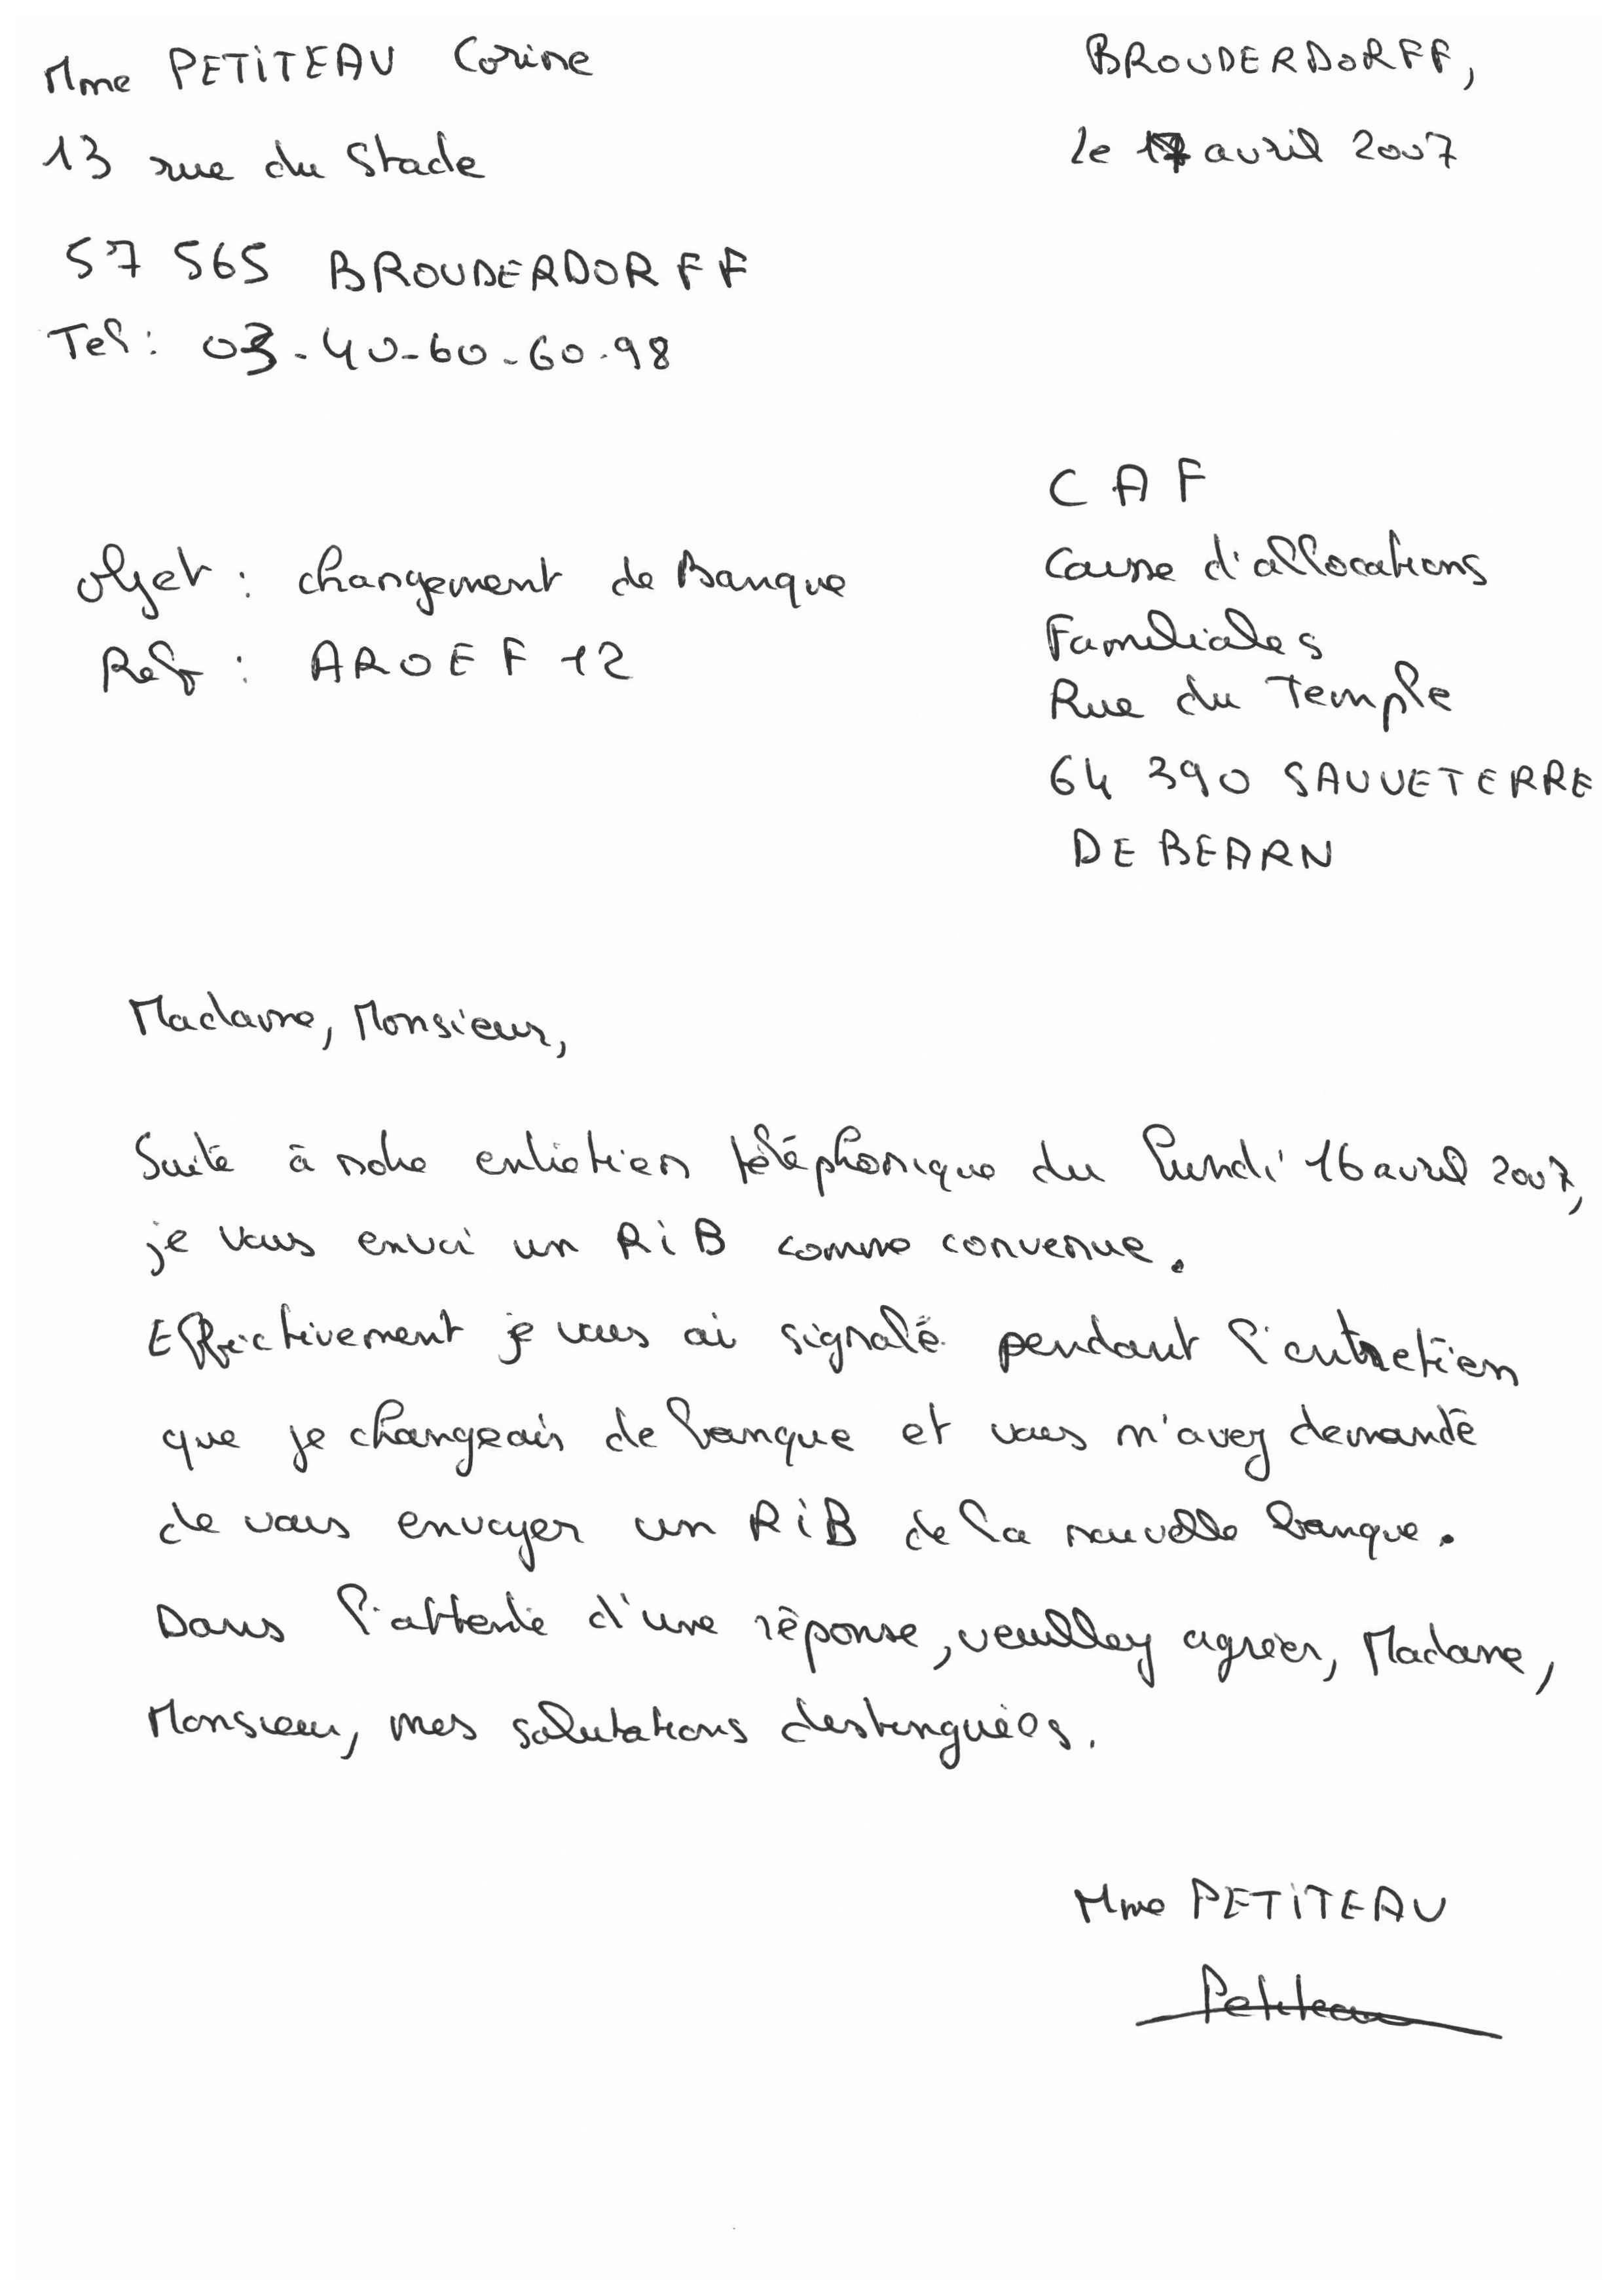 Mme PETITEAU Corine
13 rue du Stade
57 565 BROUDERDORFF
Tel : 03-40-60-60-98
BROUDERDORFF,
le 17 avril 2007
CAF
Caisse d'allocations
Familiales
Rue du Temple
64 390 SAUVETERRE
DE BEARN
objet : changement de Banque
Ref : AROEF12
Madame, Monsieur,
Suite à notre entretien téléphonique du lundi 16 avril 2007,
je vous envoi un RIB comme convenue.
Effectivement je vous ai signalé pendant l'entretien
que je changeais de banque et vous m'avez demandé
de vous envoyer un RIB de la nouvelle banque.
Dans l'attente d'une réponse, veuillez agréer, Madame,
Monsieur, mes salutations distinguées.
Mme PETITEAU
Petiteau